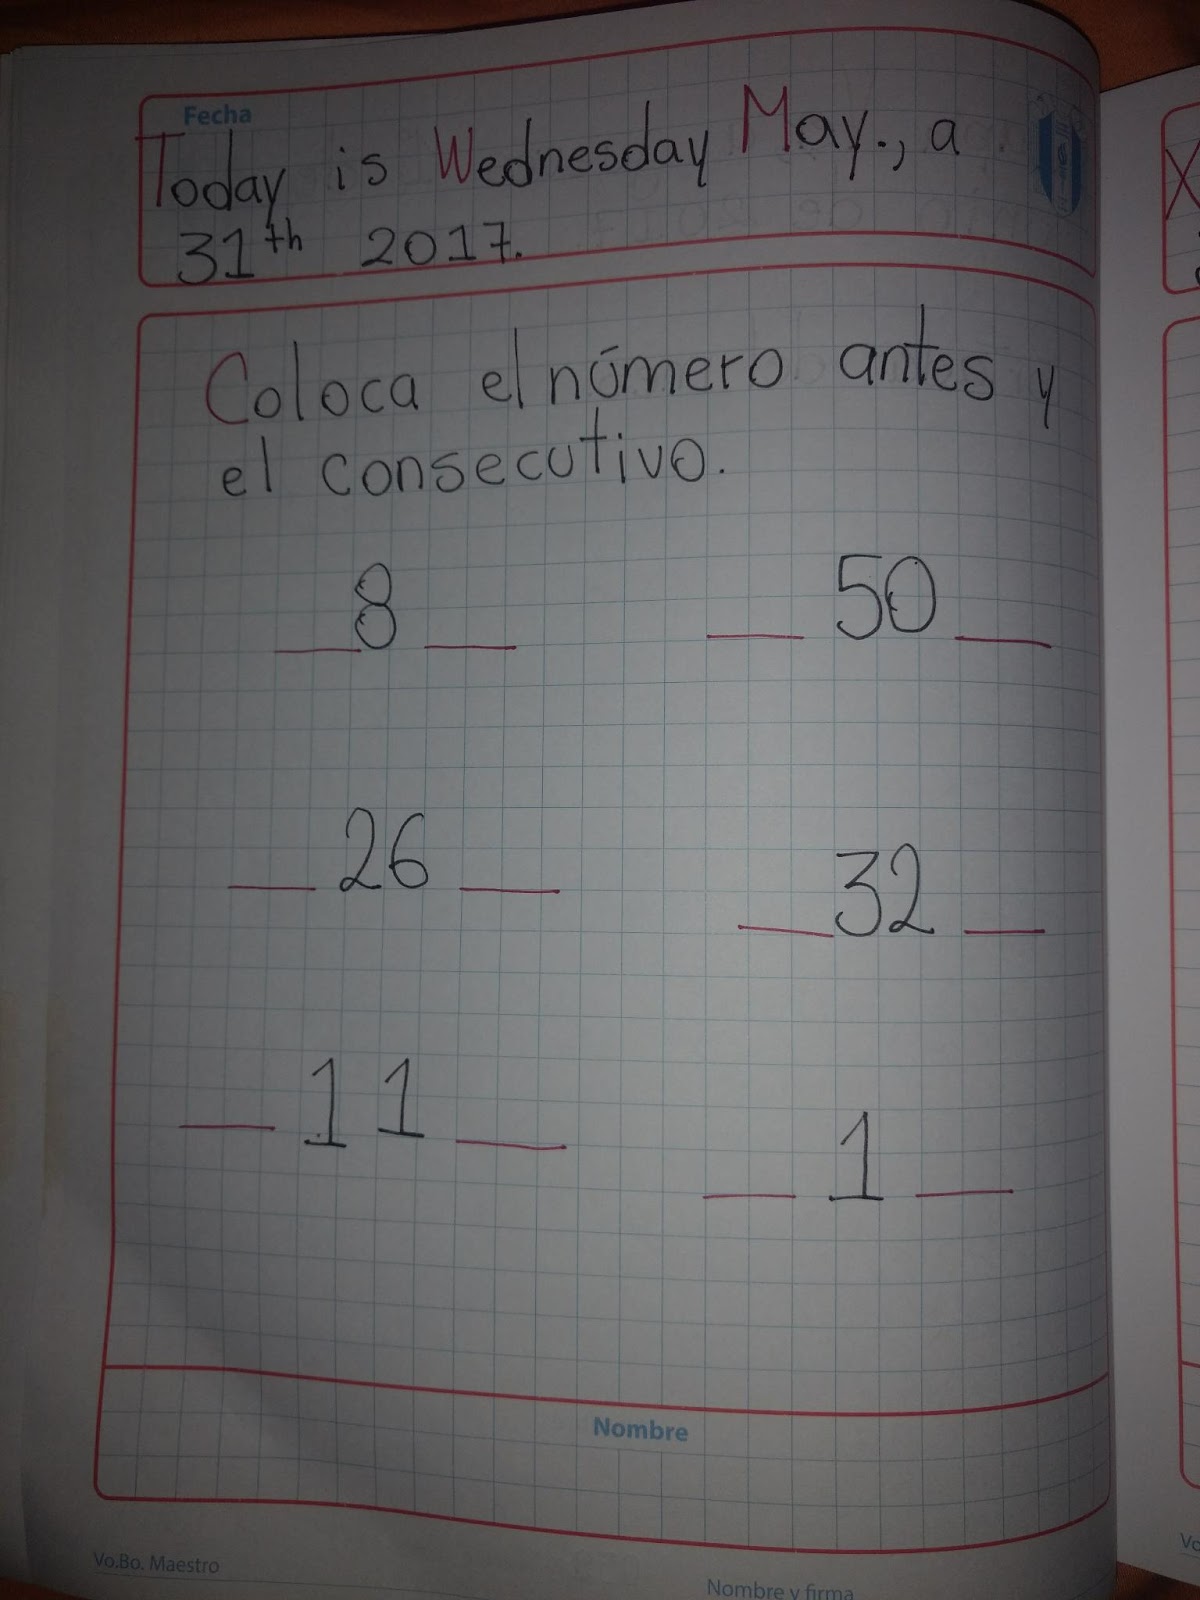 Fecha
Today is Wednesday May., a
31th 2017.
Coloca el número antes y
el consecutivo.
__ 8 __ __ 50 __
__ 26 __ __ 32 __
__ 11 __ __ 1 __
Nombre
Vo.Bo. Maestro
Nombre y firma